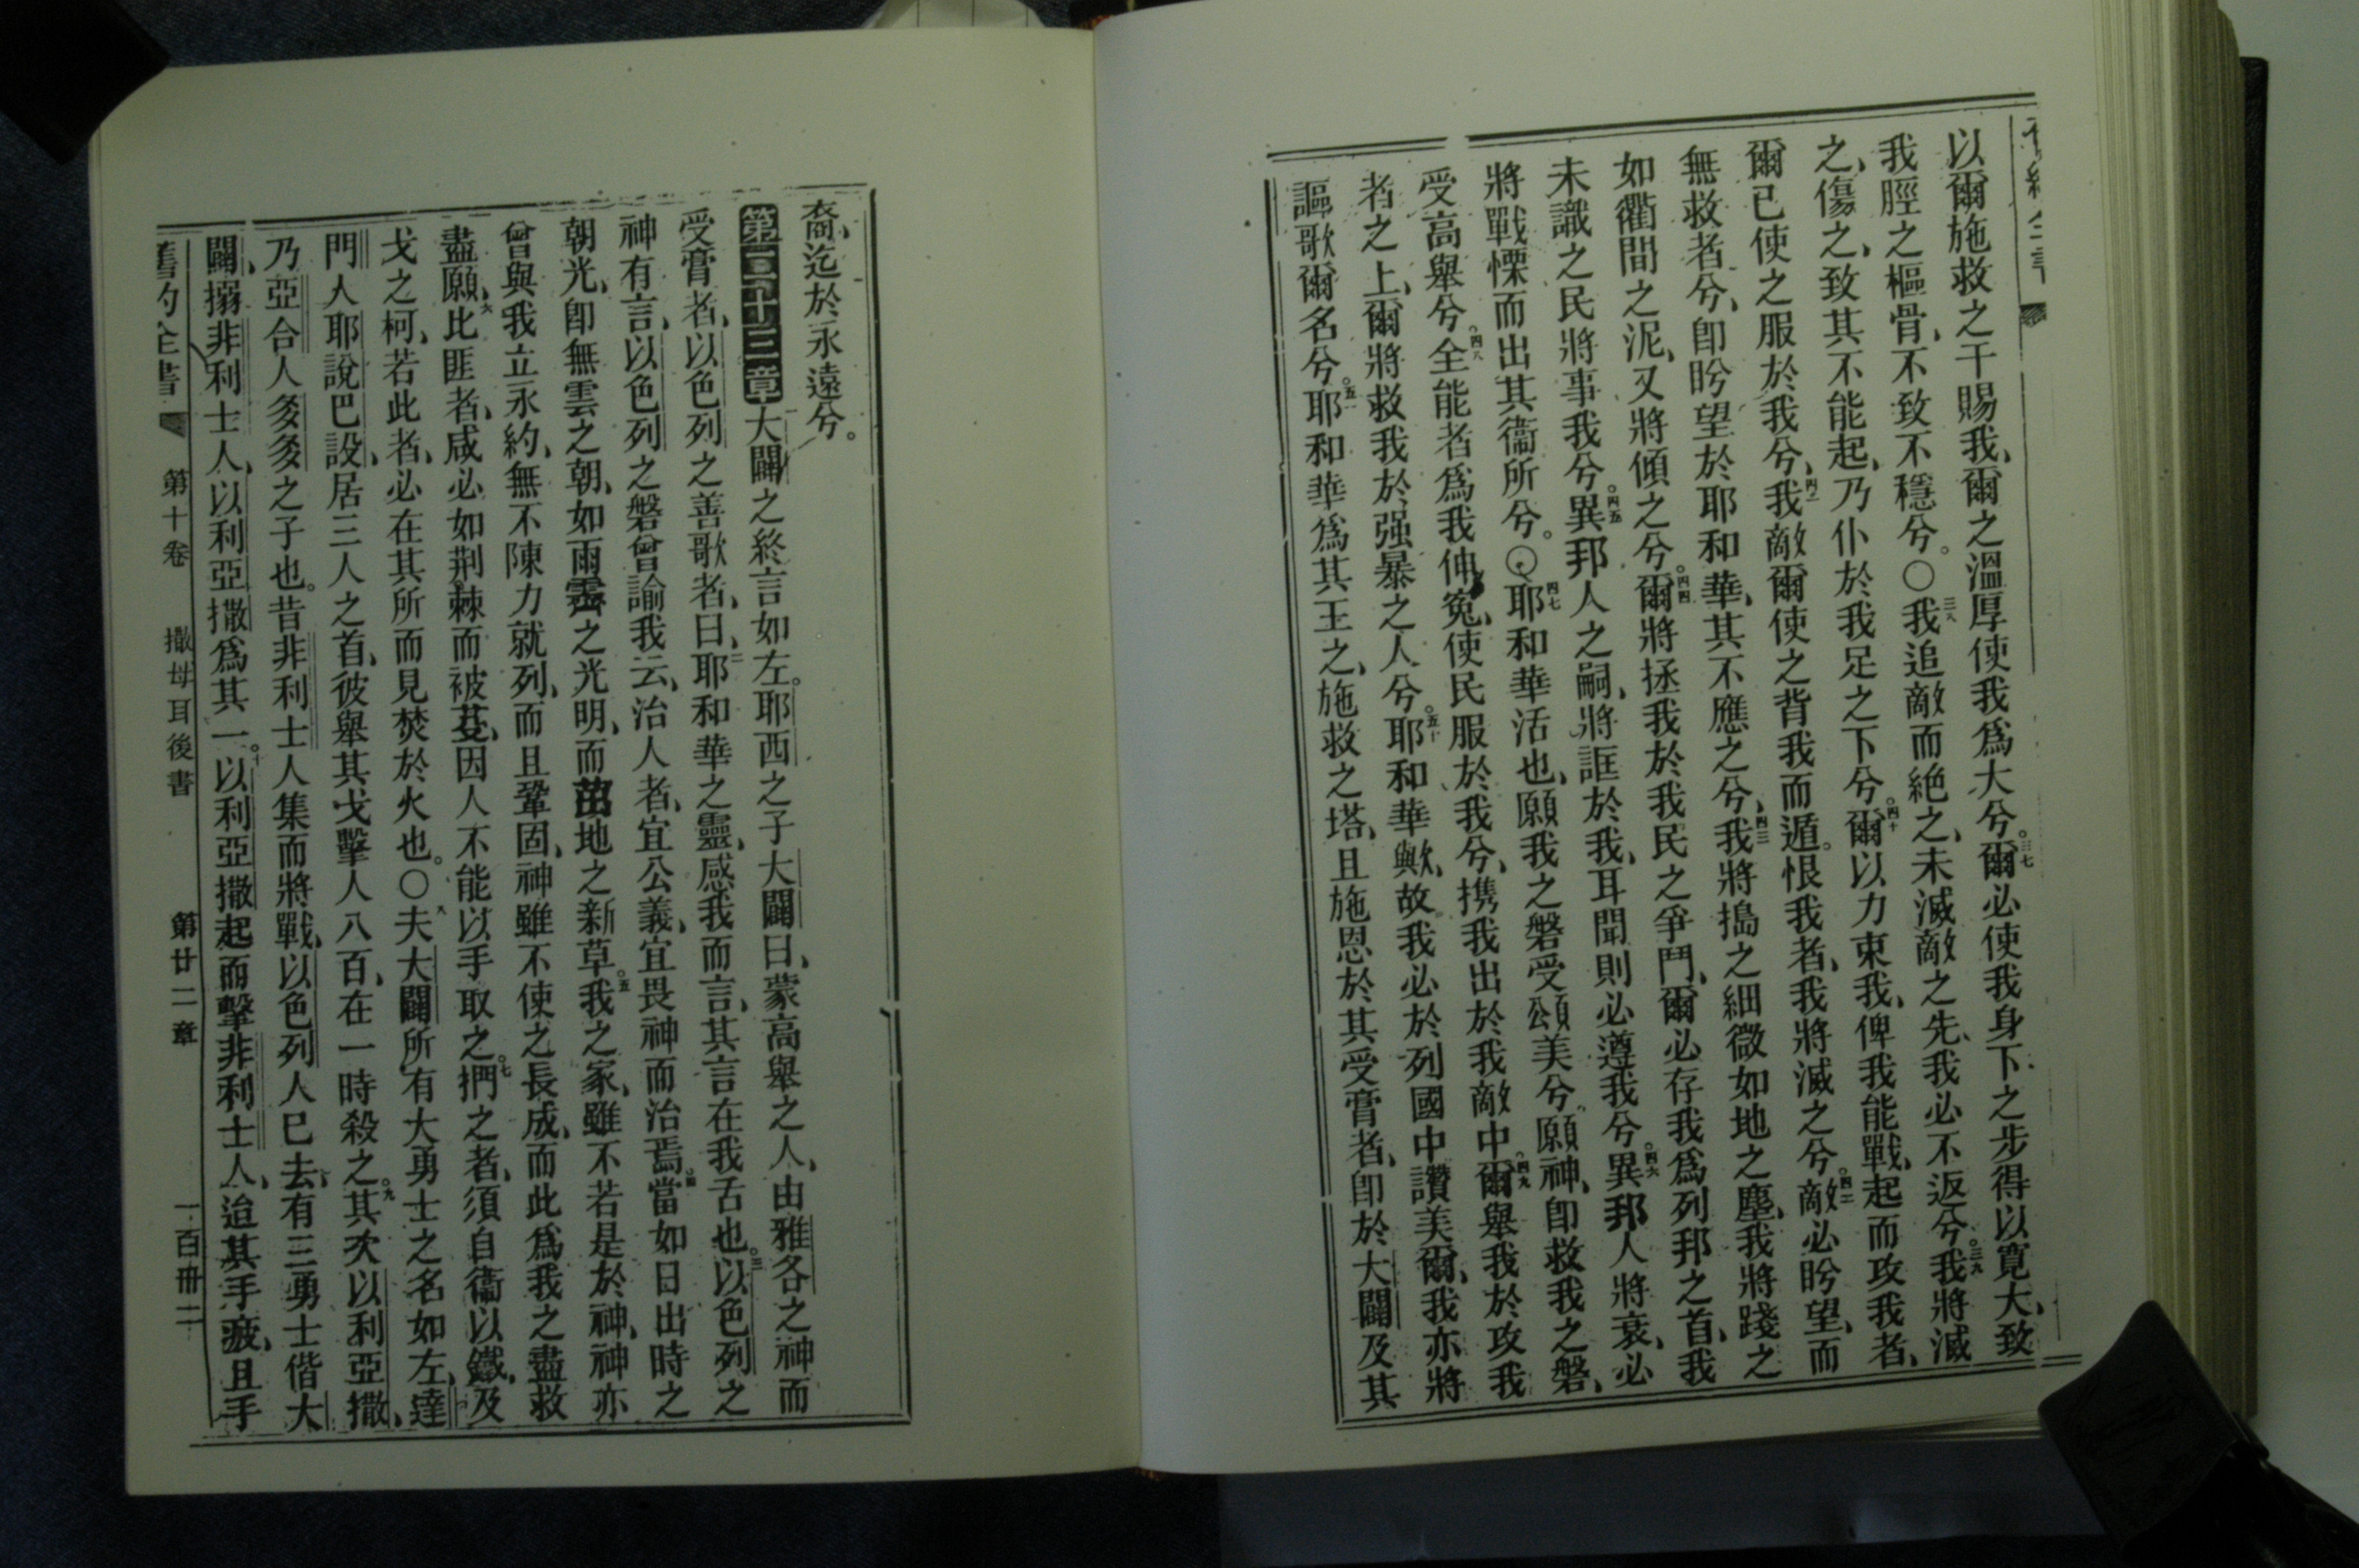 以爾施救之干賜我、爾之溫厚使我爲大兮。三七爾必使我身下之步得以寬大、致
我脛之樞骨、不致不穩兮。〇三八我追敵而絕之、未滅敵之先、我必不返兮。三九我將滅
之、傷之、致其不能起、乃仆於我足之下兮。四十爾以力束我、俾我能戰、起而攻我者、
爾已使之服於我兮、四一我敵爾使之背我而遁。恨我者、我將滅之兮。四二敵必盻望、而
無救者兮、卽盻望於耶和華、其不應之兮、四三我將搗之細微如地之塵、我將踐之
如衢間之泥、又將傾之兮。四四爾將拯我於我民之爭鬥、爾必存我爲列邦之首、我
未識之民將事我兮。四五異邦人之嗣、將誆於我、耳聞則必遵我兮。四六異邦人將衰、必
將戰慄而出其衞所兮。〇四七耶和華活也、願我之磐受頌美兮、願神、卽救我之磐、
受高舉兮。四八全能者爲我伸寃、使民服於我兮、携我出於我敵中、四九爾舉我於攻我
者之上、爾將救我於强暴之人兮。五十耶和華歟、故我必於列國中讚美爾、我亦將
謳歌爾名兮。五一耶和華爲其王之、施救之塔、且施恩於其受膏者、卽於大闢及其
裔、迄於永遠兮。
第二十三章 大闢之終言如左。耶西之子大闢曰、蒙高舉之人、由雅各之神而
受膏者、以色列之善歌者、曰、二耶和華之靈、感我而言、其言在我舌也。三以色列之
神有言、以色列之磐曾諭我云、治人者、宜公義、宜畏神而治焉。四當如日出時之
朝光、卽無雲之朝、如雨霽之光明、而茁地之新草。五我之家、雖不若是於神、神亦
曾與我立永約、無不陳力就列、而且鞏固、神雖不使之長成、而此爲我之盡救
盡願、六比匪者、咸必如荆棘而被芟、因人不能以手取之。七捫之者、須自衞以鐵、及
戈之柯、若此者、必在其所而見焚於火也。〇八夫大闢所有大勇士之名如左、達
門人耶說巴設、居三人之首、彼舉其戈擊人八百、在一時殺之。九其次以利亞撒、
乃亞合人多多之子也。昔非利士人集而將戰、以色列人已去、有三勇士偕大
闢、搦非利士人、以利亞撒爲其一。十以利亞撒起而擊非利士人、迨其手疲、且手
舊約全書 第十卷 撒母耳後書 第廿二章 一百卌二